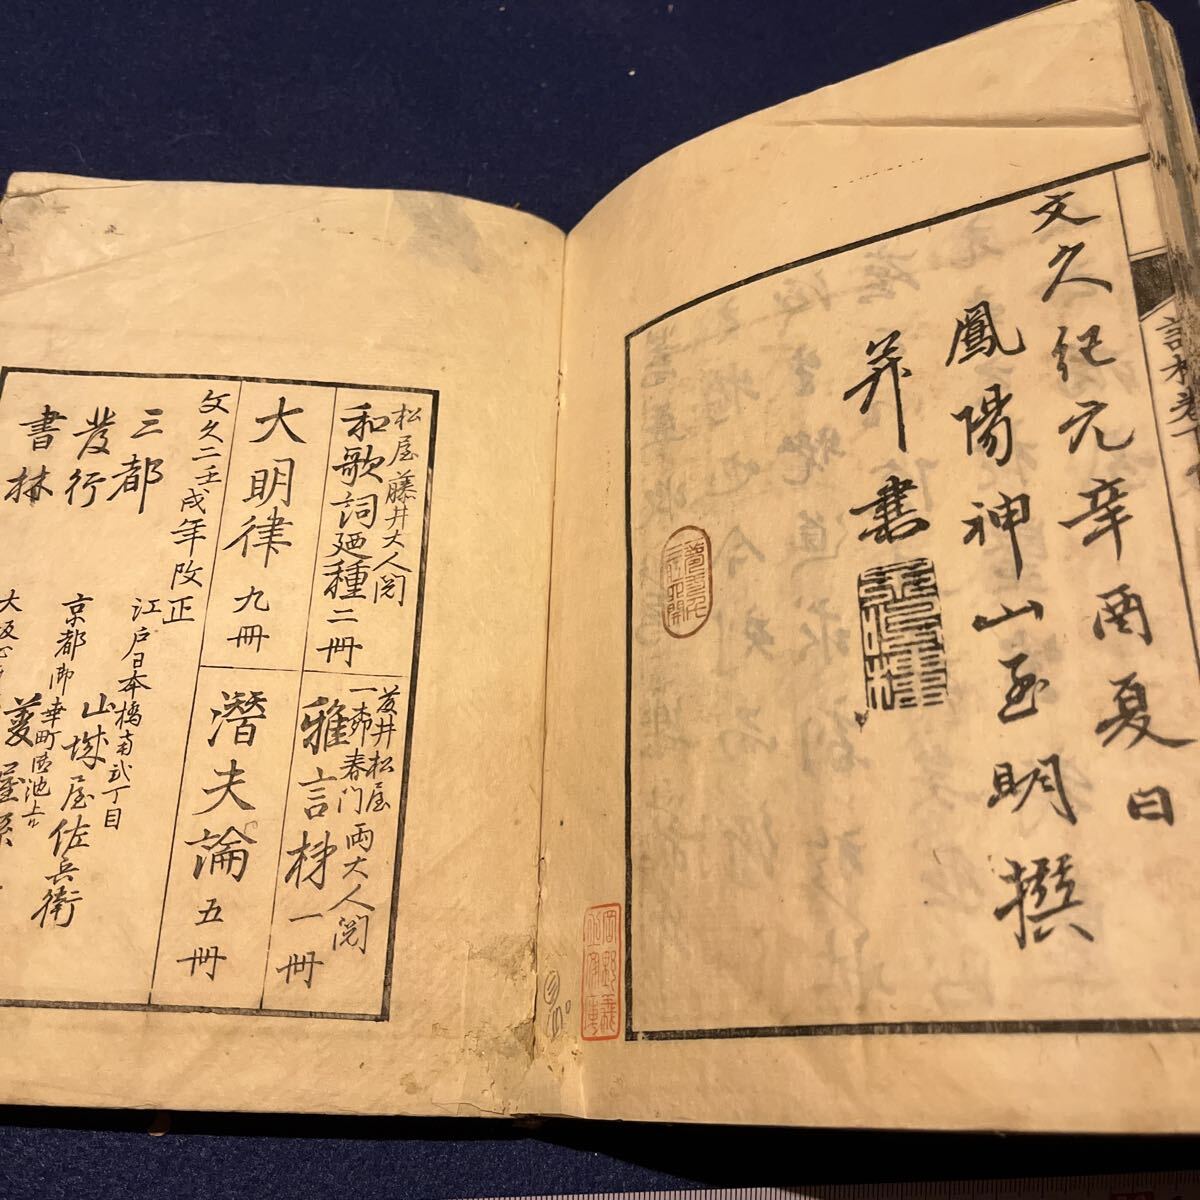 文久紀元辛酉夏日
鳳陽神山至明撰
并書
松屋藤井大人閲
和歌詞廼種二冊
藤井松屋
一柳春門両大人閲
雅言梯一冊
大明律九冊
潜夫論五冊
文久二壬戌年改正
三都
發行
書林
江戸日本橋南弐丁目
山城屋佐兵衛
京都御幸町御池上ル
菱屋孫